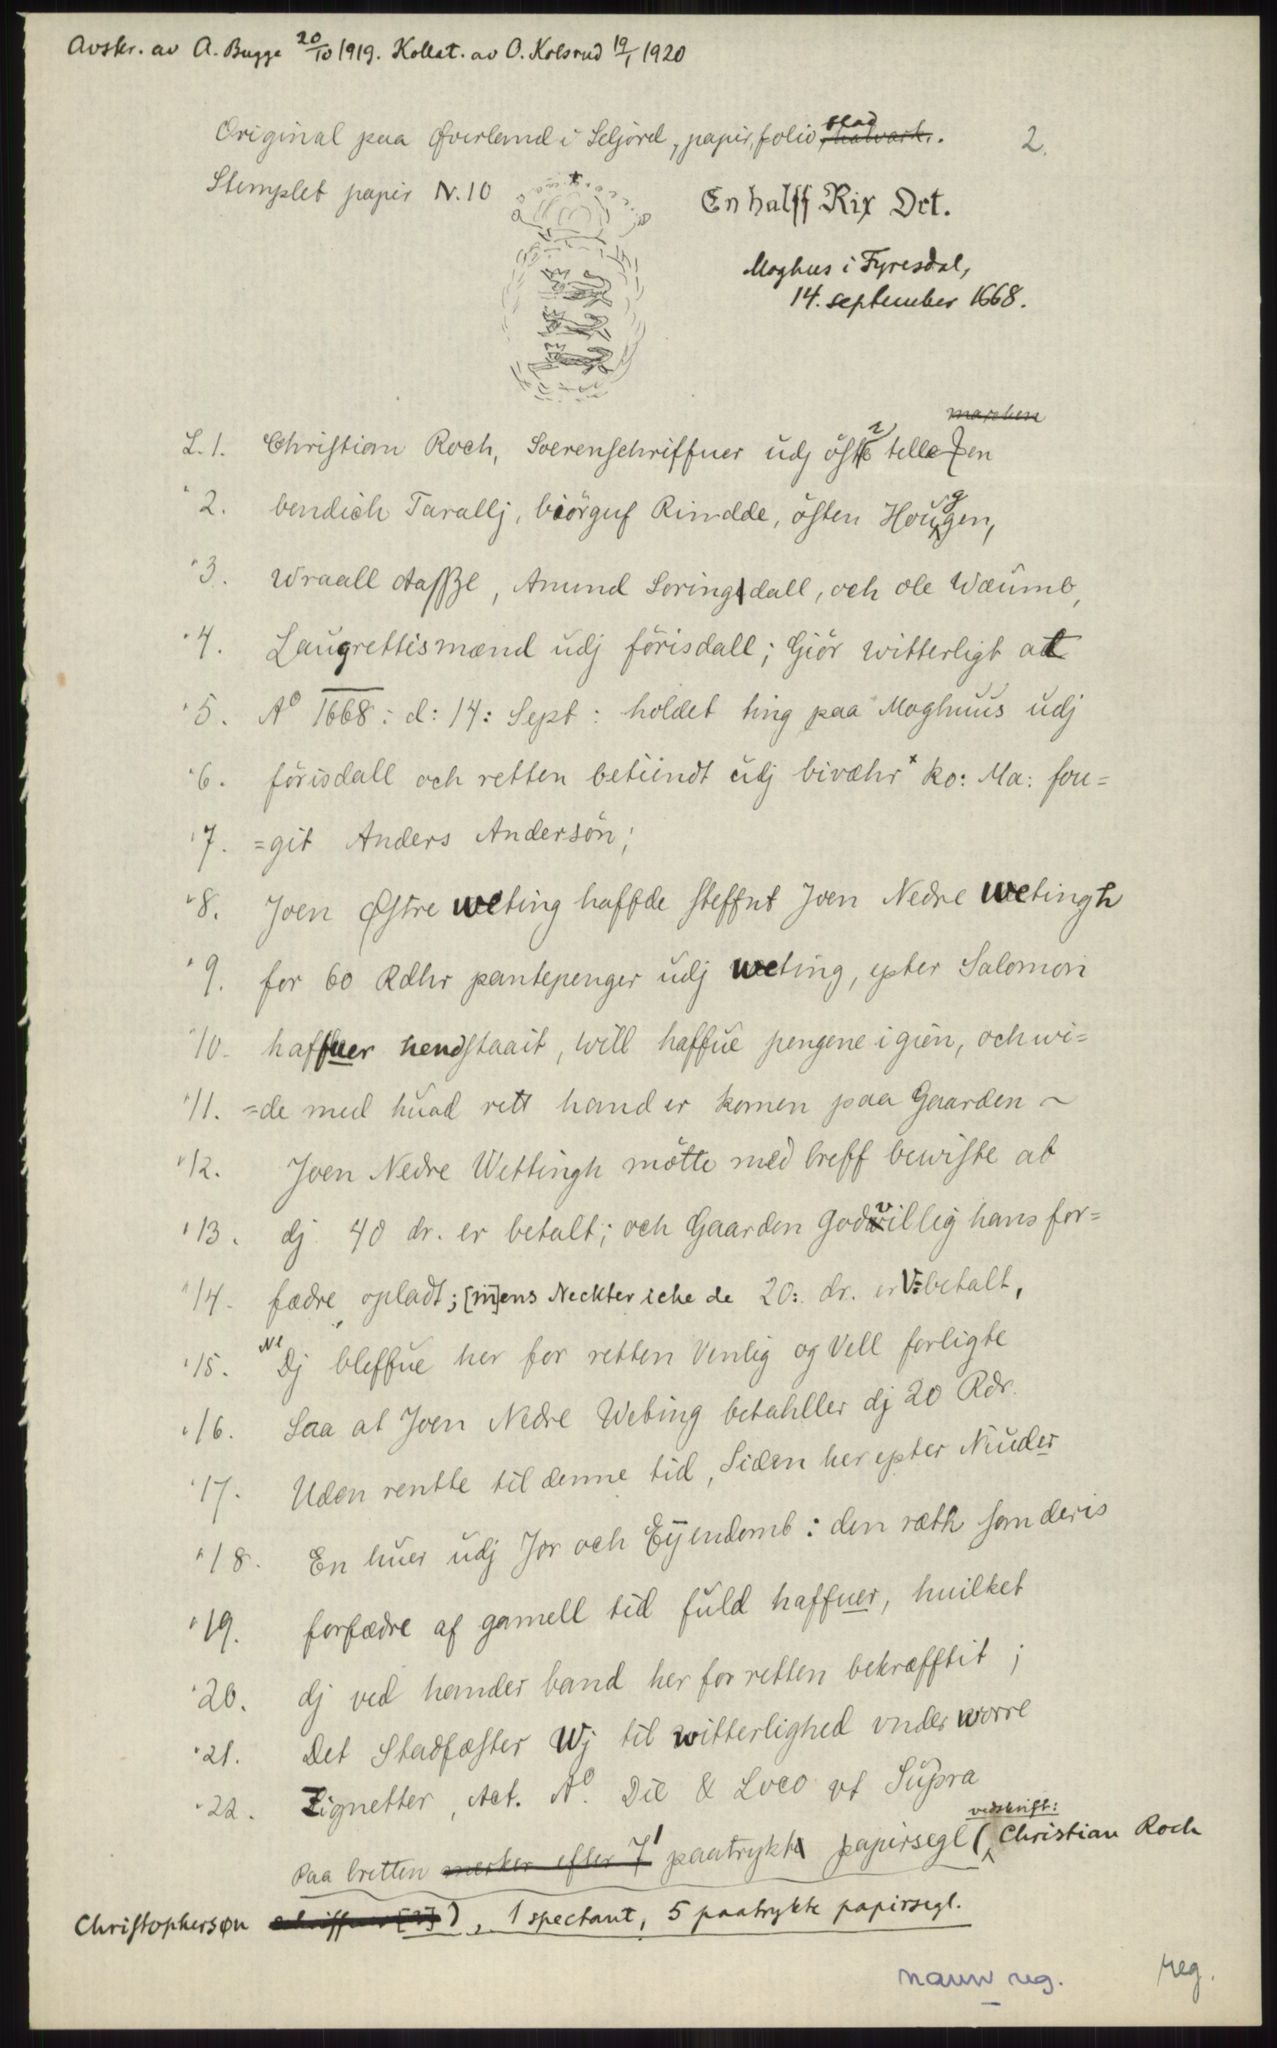 Avskr. av A. Bugge 20/10 1919. Kollat. av O. Kolsrud 19/1 1920
Original paa Øverland i Seljord, papir, folio blad halvark.
2.
Stemplet papir N. 10
En halff Rix Dct.
Moghus i Fyresdal,
14. september 1668.
marchen
L. 1. Christian Roch, Soerenschriffuer udj östr telle en
" 2. bendich Tarallj, biörguf Rimdde, östen Hougen,
" 3. Wraall Aassze, Amund Soringdall, och ole Wæumb,
" 4. Laugrettismænd udj förisdall; Giör witterligt att
" 5. Ao 1668: d: 14: Sept: holdet ting paa Moghuus udj
" 6. förisdall och retten betiendt udj bivæhr* ko: Ma: fou=
" 7. =git Anders Andersön;
" 8. Joen Østre weting haffde steffnt Joen Nedre wetingh
" 9. for 60 Rdlr pantepenger udj weting, epter Salomon
" 10. haffuer hendstaait, will haffue pengene igien, och wi=
" 11. =de med huad rett hand er komen paa Gaarden ~
" 12. Joen Nedre Wettingh mötte med breff bewiste at
" 13. dj 40 dr. er betalt; och Gaarden Godvillig hans for=
" 14. fædre opladt; [m]ens Neckter iche de 20: dr. er V=betalt,
" 15. Ne Dj bleffue her for retten Venlig og Vell forligte
" 16. Saa at Joen Nedre Weting betahller dj 20 Rdr.
" 17. Uden rentte til denne tid, Siden her epter Niuder
" 18. En huer udj Jor och Eyendomb: den ræth som deris
" 19. forfædre af gamell tid fuld haffuer, huilket
" 20. dj ved hander band her for retten bekræfftit;
" 21. Det Stadfæster Wj til witterlighed vnder worre
" 22. Zignetter, Act. Ao. Die & Loco vt Supra
vedskrift:
Paa bretten merker efter 7 1 paatrykt papirsegl (Christian Roch
Christophersøn ), 1 spectant, 5 paatrykte papirsegl.
navnreg.
reg.